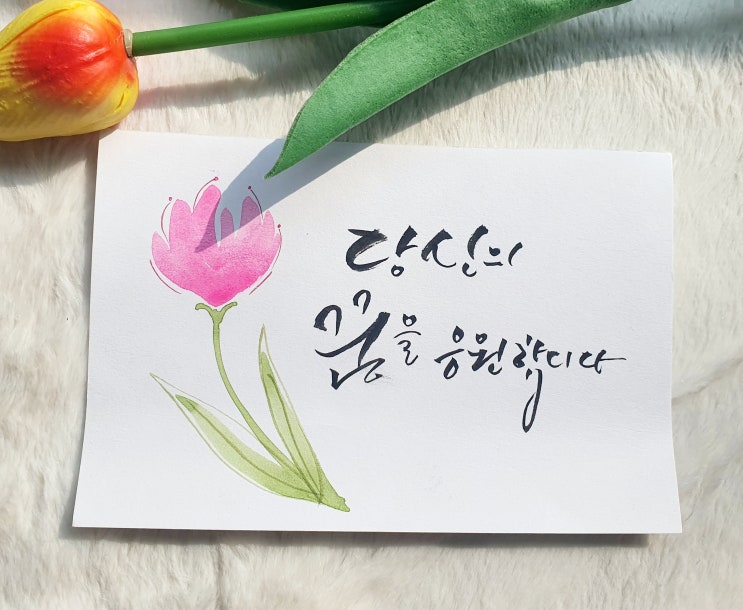 당신의
꿈을 응원합니다